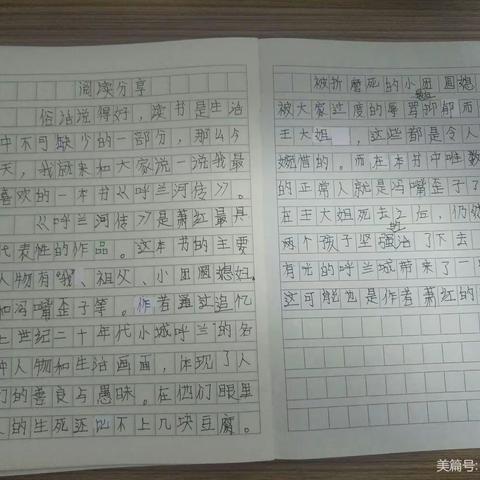 阅读分享
俗话说得好，读书是生活
中不可缺少的一部分，那么今
天，我就来和大家说一说我最
喜欢的一本书《呼兰河传》。
《呼兰河传》是萧红最具
代表性的作品。这本书的主要
人物有"我"、祖父、小团圆媳妇
和冯嘴歪子等。作者通过追忆
上世纪二十年代小城呼兰的各
种人物和生活画面，体现了人
们的善良与愚昧。在他们眼里
人的生死还比不上几块豆腐。
被折磨死的小团圆媳
被大家过度的辱骂抑郁而
王大姐，这些都是令人
婉惜的。而在本书中唯
的正常人就是冯嘴歪子了
在王大姐死去之后，仍
两个孩子坚强活了下去
有光的呼兰城带来了一
这可能也是作者萧红的
美篇号: